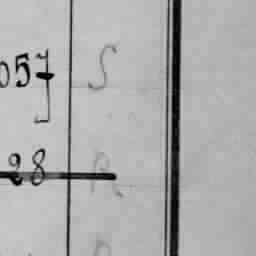 057 S
28 R